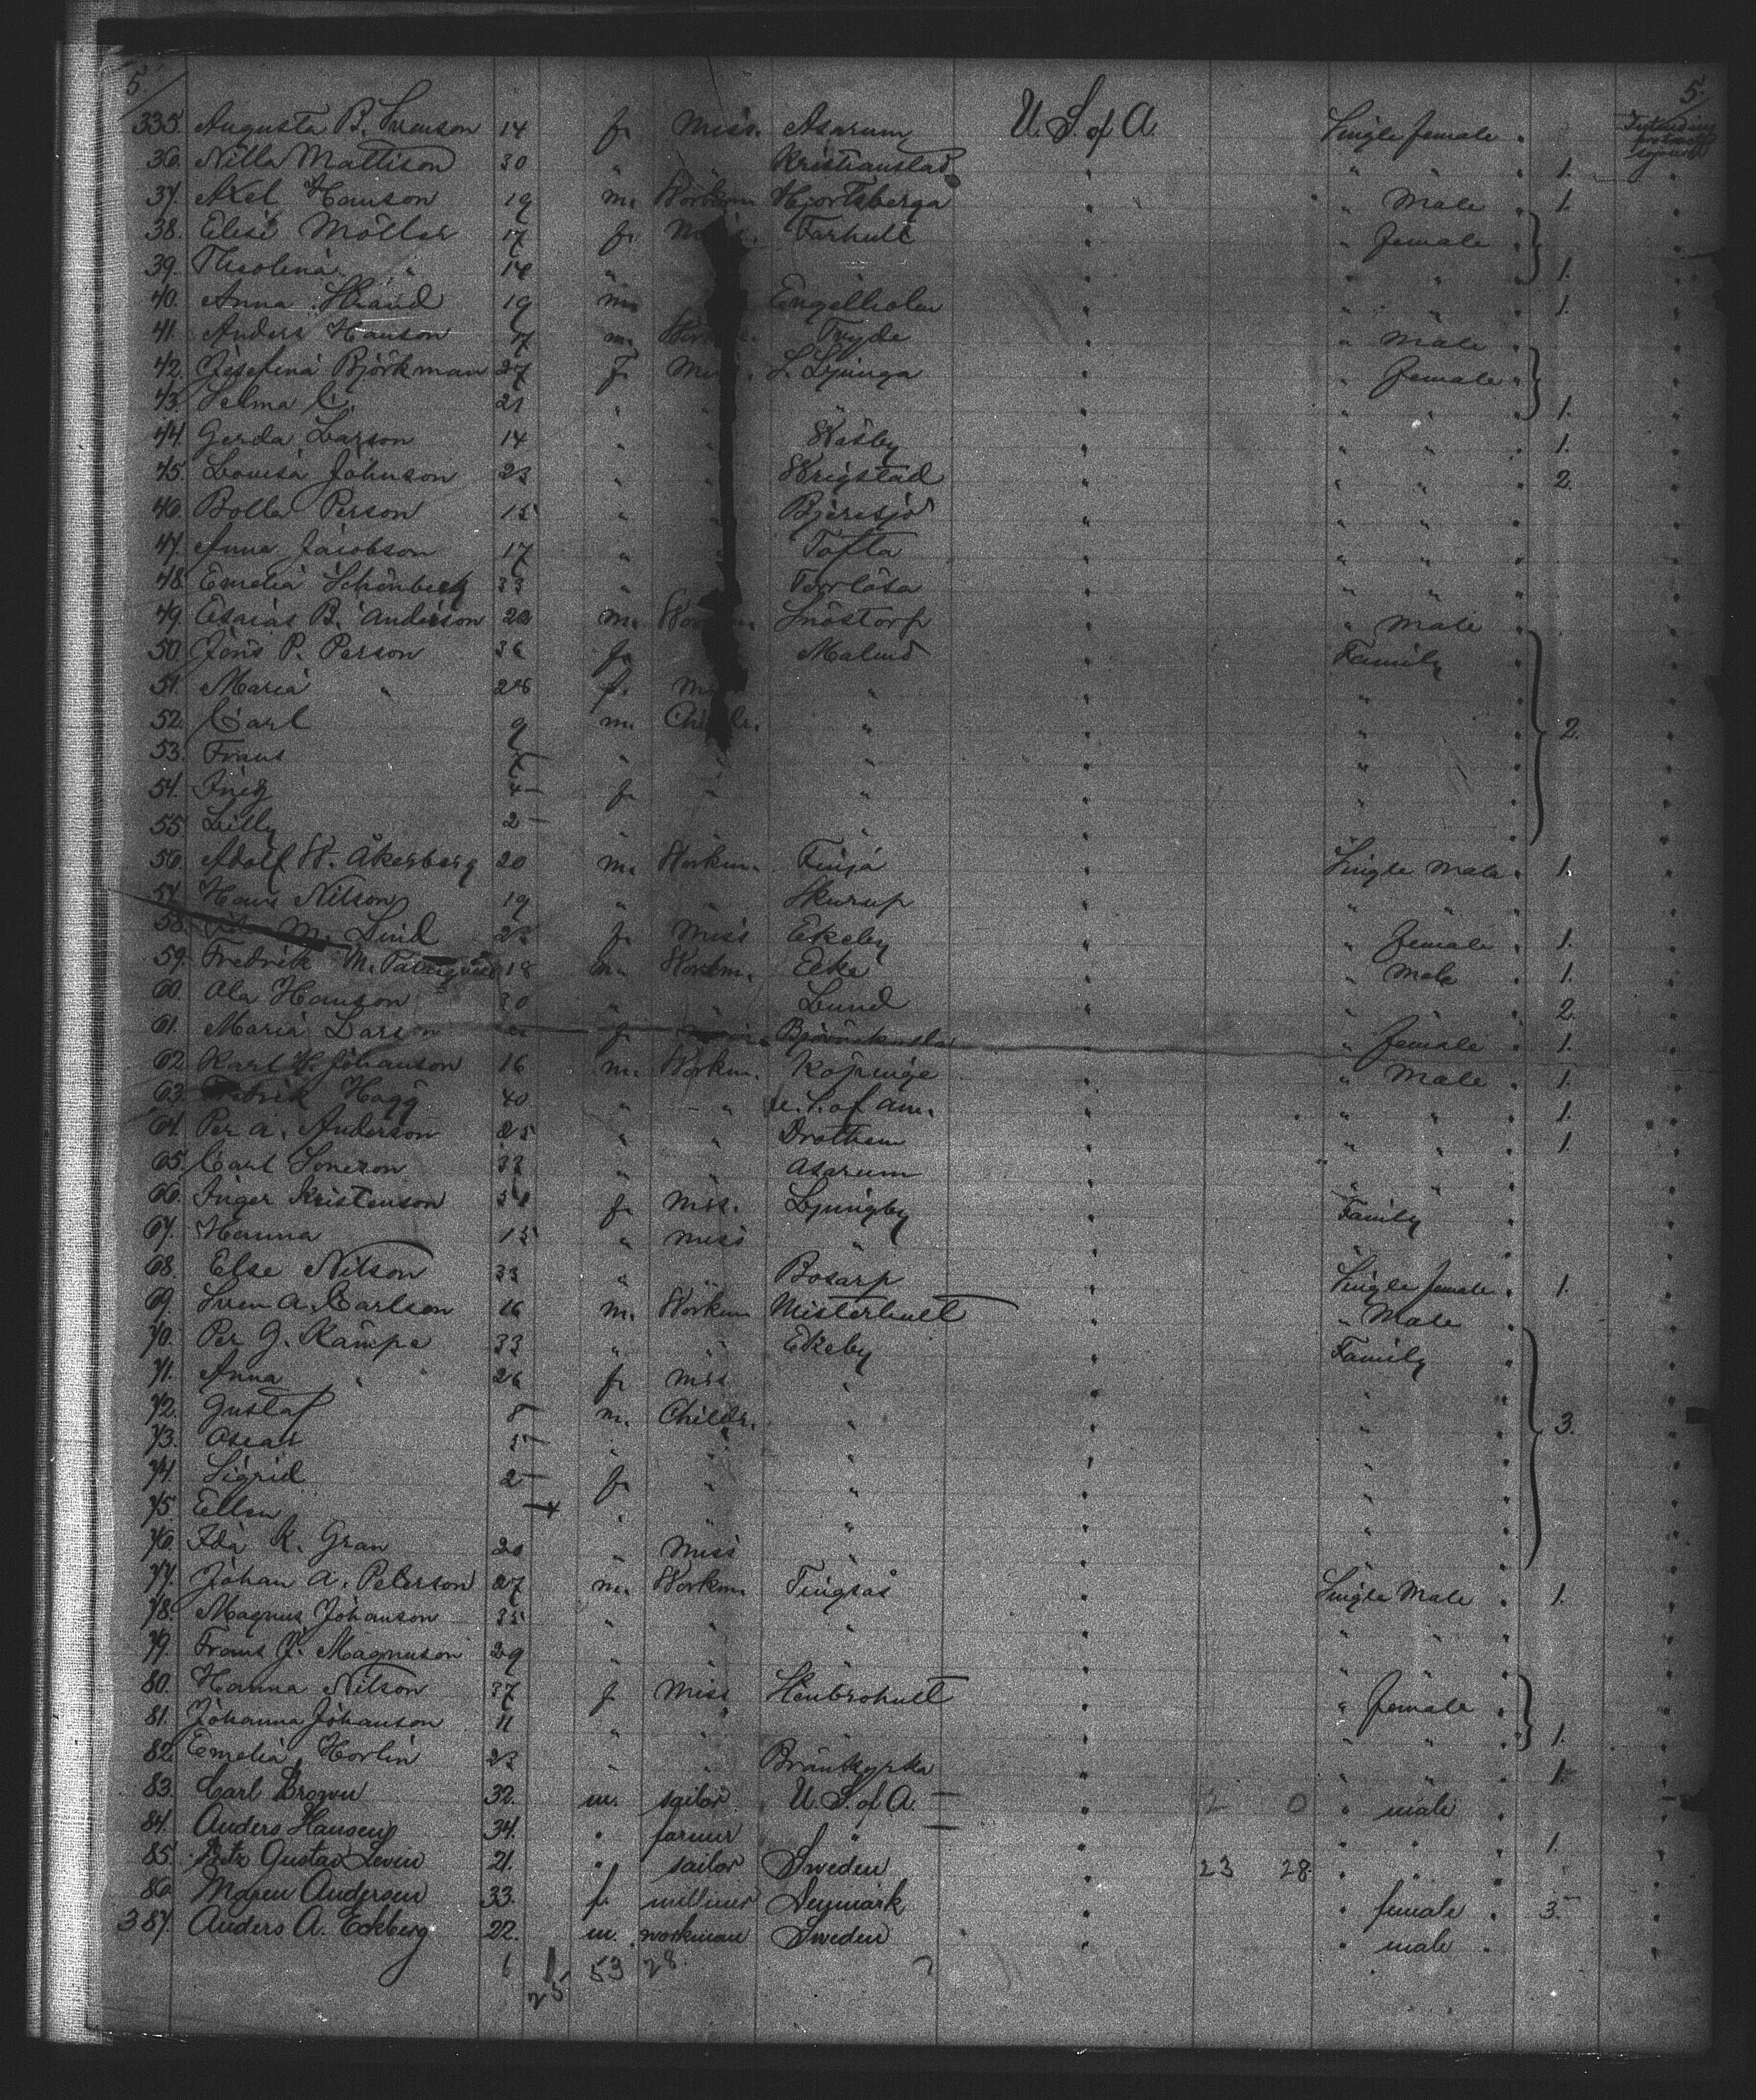 5. 5.
335. Augusta B. Svenson 14 f. Miss. Asarum U. S. of A. Single female
36. Nilla Mattison 30 " " Kristianstad " " " 1.
37. Axel Hanson 19 m. Workm Hjortsberga " " Male 1.
38. Elise Möller 17 f. Farhult " " female
39. " 14 " " " " 1.
40. Anna 19 Engelholm " " " 1.
41. Anders Hanson 17 m. Tryde " " Male
42. Josefina Björkman 27 f. L. Ljunga " " female
43. Selma C. 21 " " " " " 1.
44. Gerda Larson 14 " " Wäsby " " " 1.
45. Lovisa Johnson 23 " " Wrigstad " " " 2.
46. Bolla Person 15 " " Bjeresjö " " "
47. Anna Jacobson 17 " " Tofta " " "
48. Emelia Schönbeck 33 " Torrlösa " " "
49. Esaias B. Anderson m. Snöstorp " " Male
50. Jöns P. Person 36 Malmö " Family
51. Maria " 28 f. " " "
52. Carl 9 m. Childr. " " " 2.
53. Frans " " " " "
54. 4 f. " " " "
55. Lilly 2 " " "
56. Adolf W. Åkerberg 20 m. Workm. Finja " Single Male 1.
57. Hans Nilson 19 " " Skurup " " "
58. M. Lind f. Miss Ekeby " " female 1.
59. Fredrik M. 18 m. Workm. Eske " " Male 1.
60. Ola Hanson 30 " " Lund " " " 2.
61. Maria Larson f. " " female 1.
62. Karl H. Johanson 16 m. Workm. Köpinge " " Male 1.
63. Fredrik Hagg 40 " " U. S. of Am. " " " 1.
64. Per A. Anderson 25 " " Drothem " " " 1.
65. Carl Soneson " " Asarum " " "
66. Inger Kristenson f. Mss. Ljungby " Family
67. Hanna 15 " Miss " " "
68. Else Nilson 33 " " Bosarp " Single female 1.
69. Sven A. Carlson 16 m. Workm Misterhult " " Male
70. Per G. Kämpe 33 " " Ekeby " Family
71. Anna " 26 f. Mss " " "
72. Gustaf 8 m. Childr. " " " 3.
73. Oscar 5 " " " " "
74. Sigrid 2 f. " " " "
75. Ellen " " " " "
76. Ida K. Gran 20 " Miss " "
77. Johan A. Peterson 27 m. Workm. Tingsås " Single Male 1.
78. Magnus Johanson 35 " " " " " "
79. Frans J. Magnuson 29 " " " "
80. Hanna Nilson 37 f. Miss Stenbrohult " " female
81. Johanna Johanson 11 " " " " " 1.
82. Emelia Horlin 23 " " Brännkyrka " " " 1.
83. Carl Brown 32. m. sailor U. S. of A. " 2 0 " male
84. Anders Hansen 34. " farmer " " " " 1.
85. Gustav Levin 21. " sailor Sweden " 23 28. " "
86. Maren Andersen 33. f. milliner Denmark " " female 3.
387. Anders A. Eckberg 22. m. workman Sweden " " male
6 1 53 28.
25